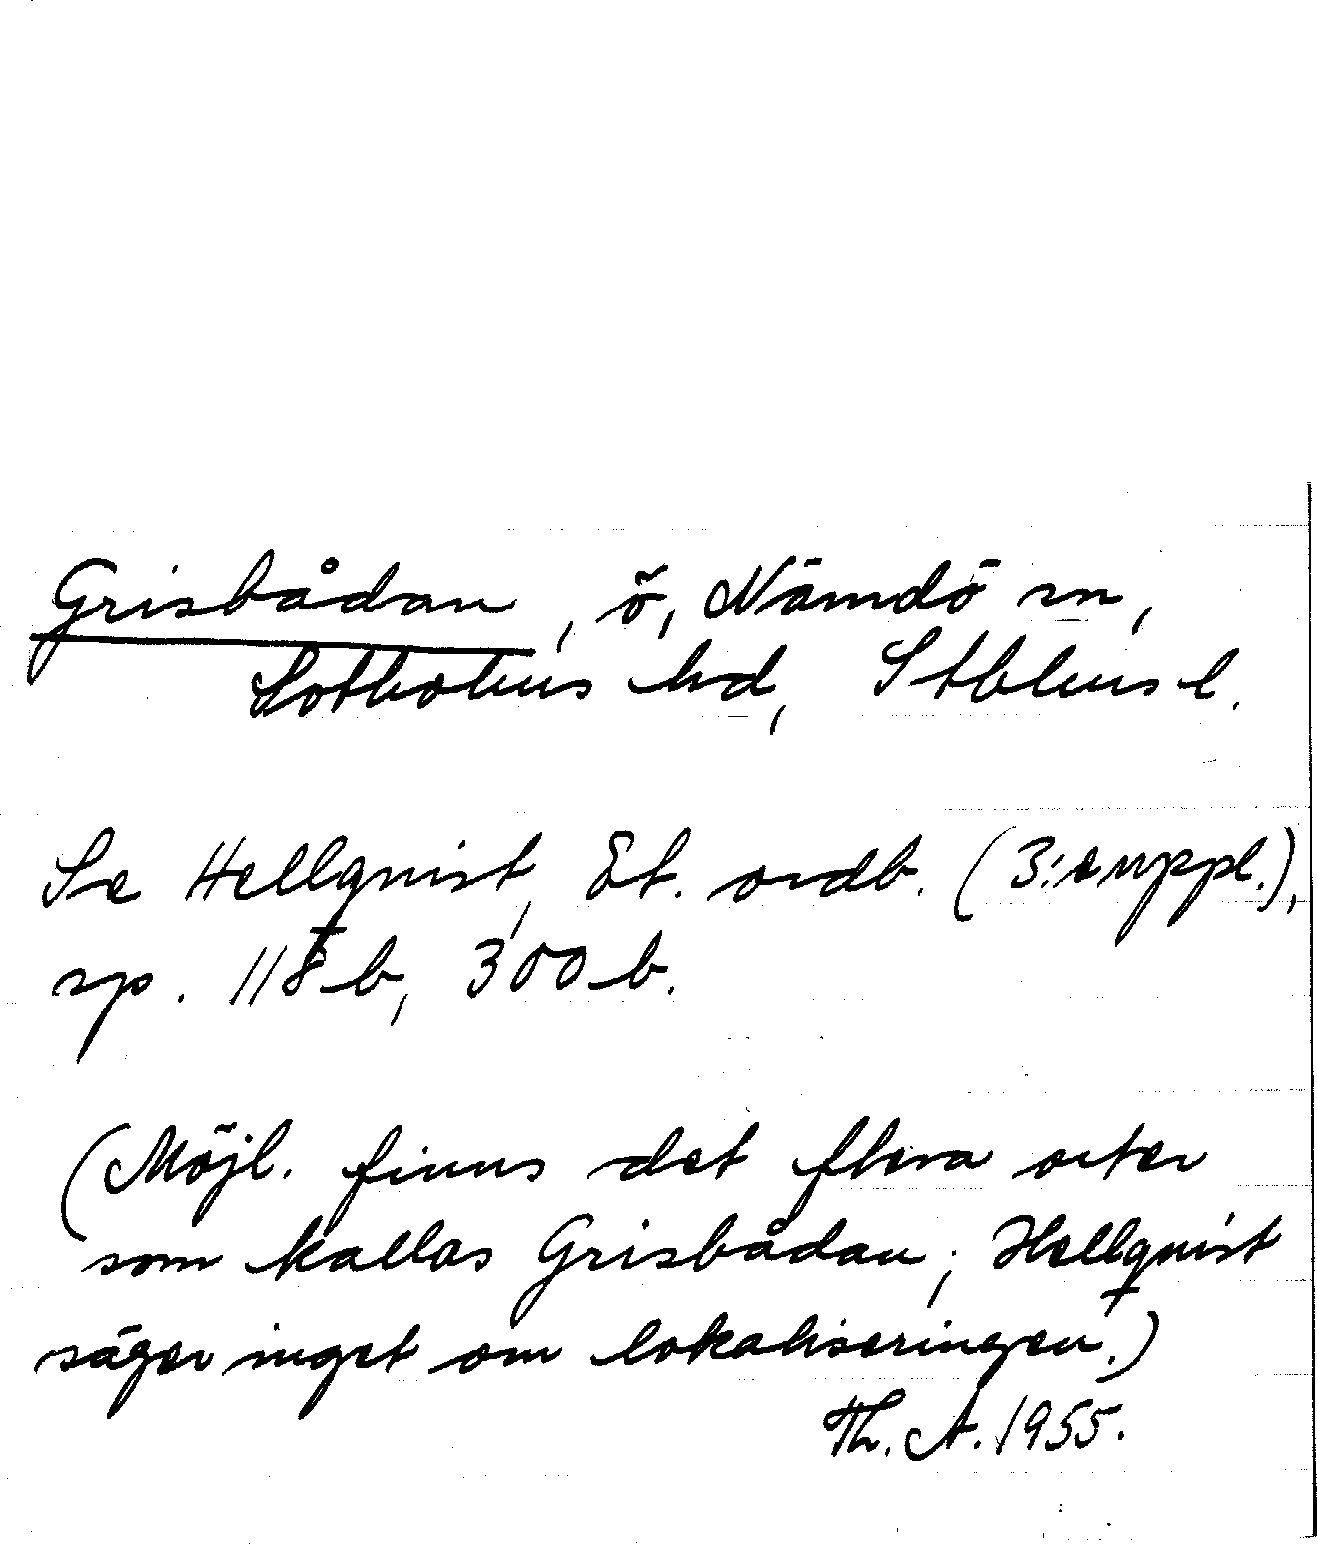 Grisbådan, ö, Nämdö sn,
Sotholms hd, Stblms l.
Se Hellquist, Et. ordb. (3:e uppl.),
sp. 118 b, 300 b.
(Möjl. finns det flera orter
som kallas Grisbådan; Hellquist
säger inget om lokaliseringen.)
Th. A. 1955.